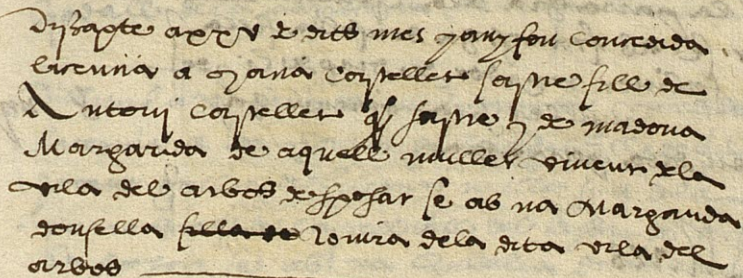 Discapte a xxv de dits mes y any fou concedida
licencia a Joan Casteller sastre fill de
Antoni Casteller q° sastre y de madona
Margarida de aquell muller vivent de la
vila del arbos desposar se ab na Margarida
donsella filla de Rovira de la dita vila del
arbos